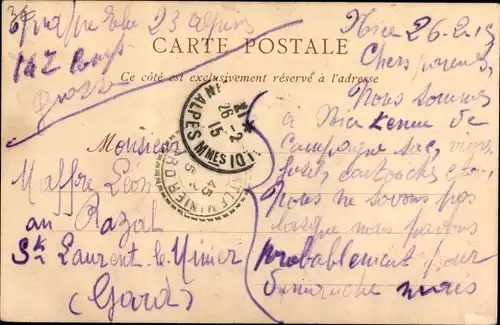 23 alpins
CARTE POSTALE
Ce côté est exclusivement réservé à l'adresse
Nice 26-2-15
Chers parents
Nous sommes
à Nice tenue de
campagne sac, vivres
fusil cartouches etc,
Nous ne savons pas
lorsque nous partons
probablement pour
dimanche mais
Monsieur
Maffre Léon
au Razal
St Laurent le Minier
(Gard)
26-2
15
ALPES MMES